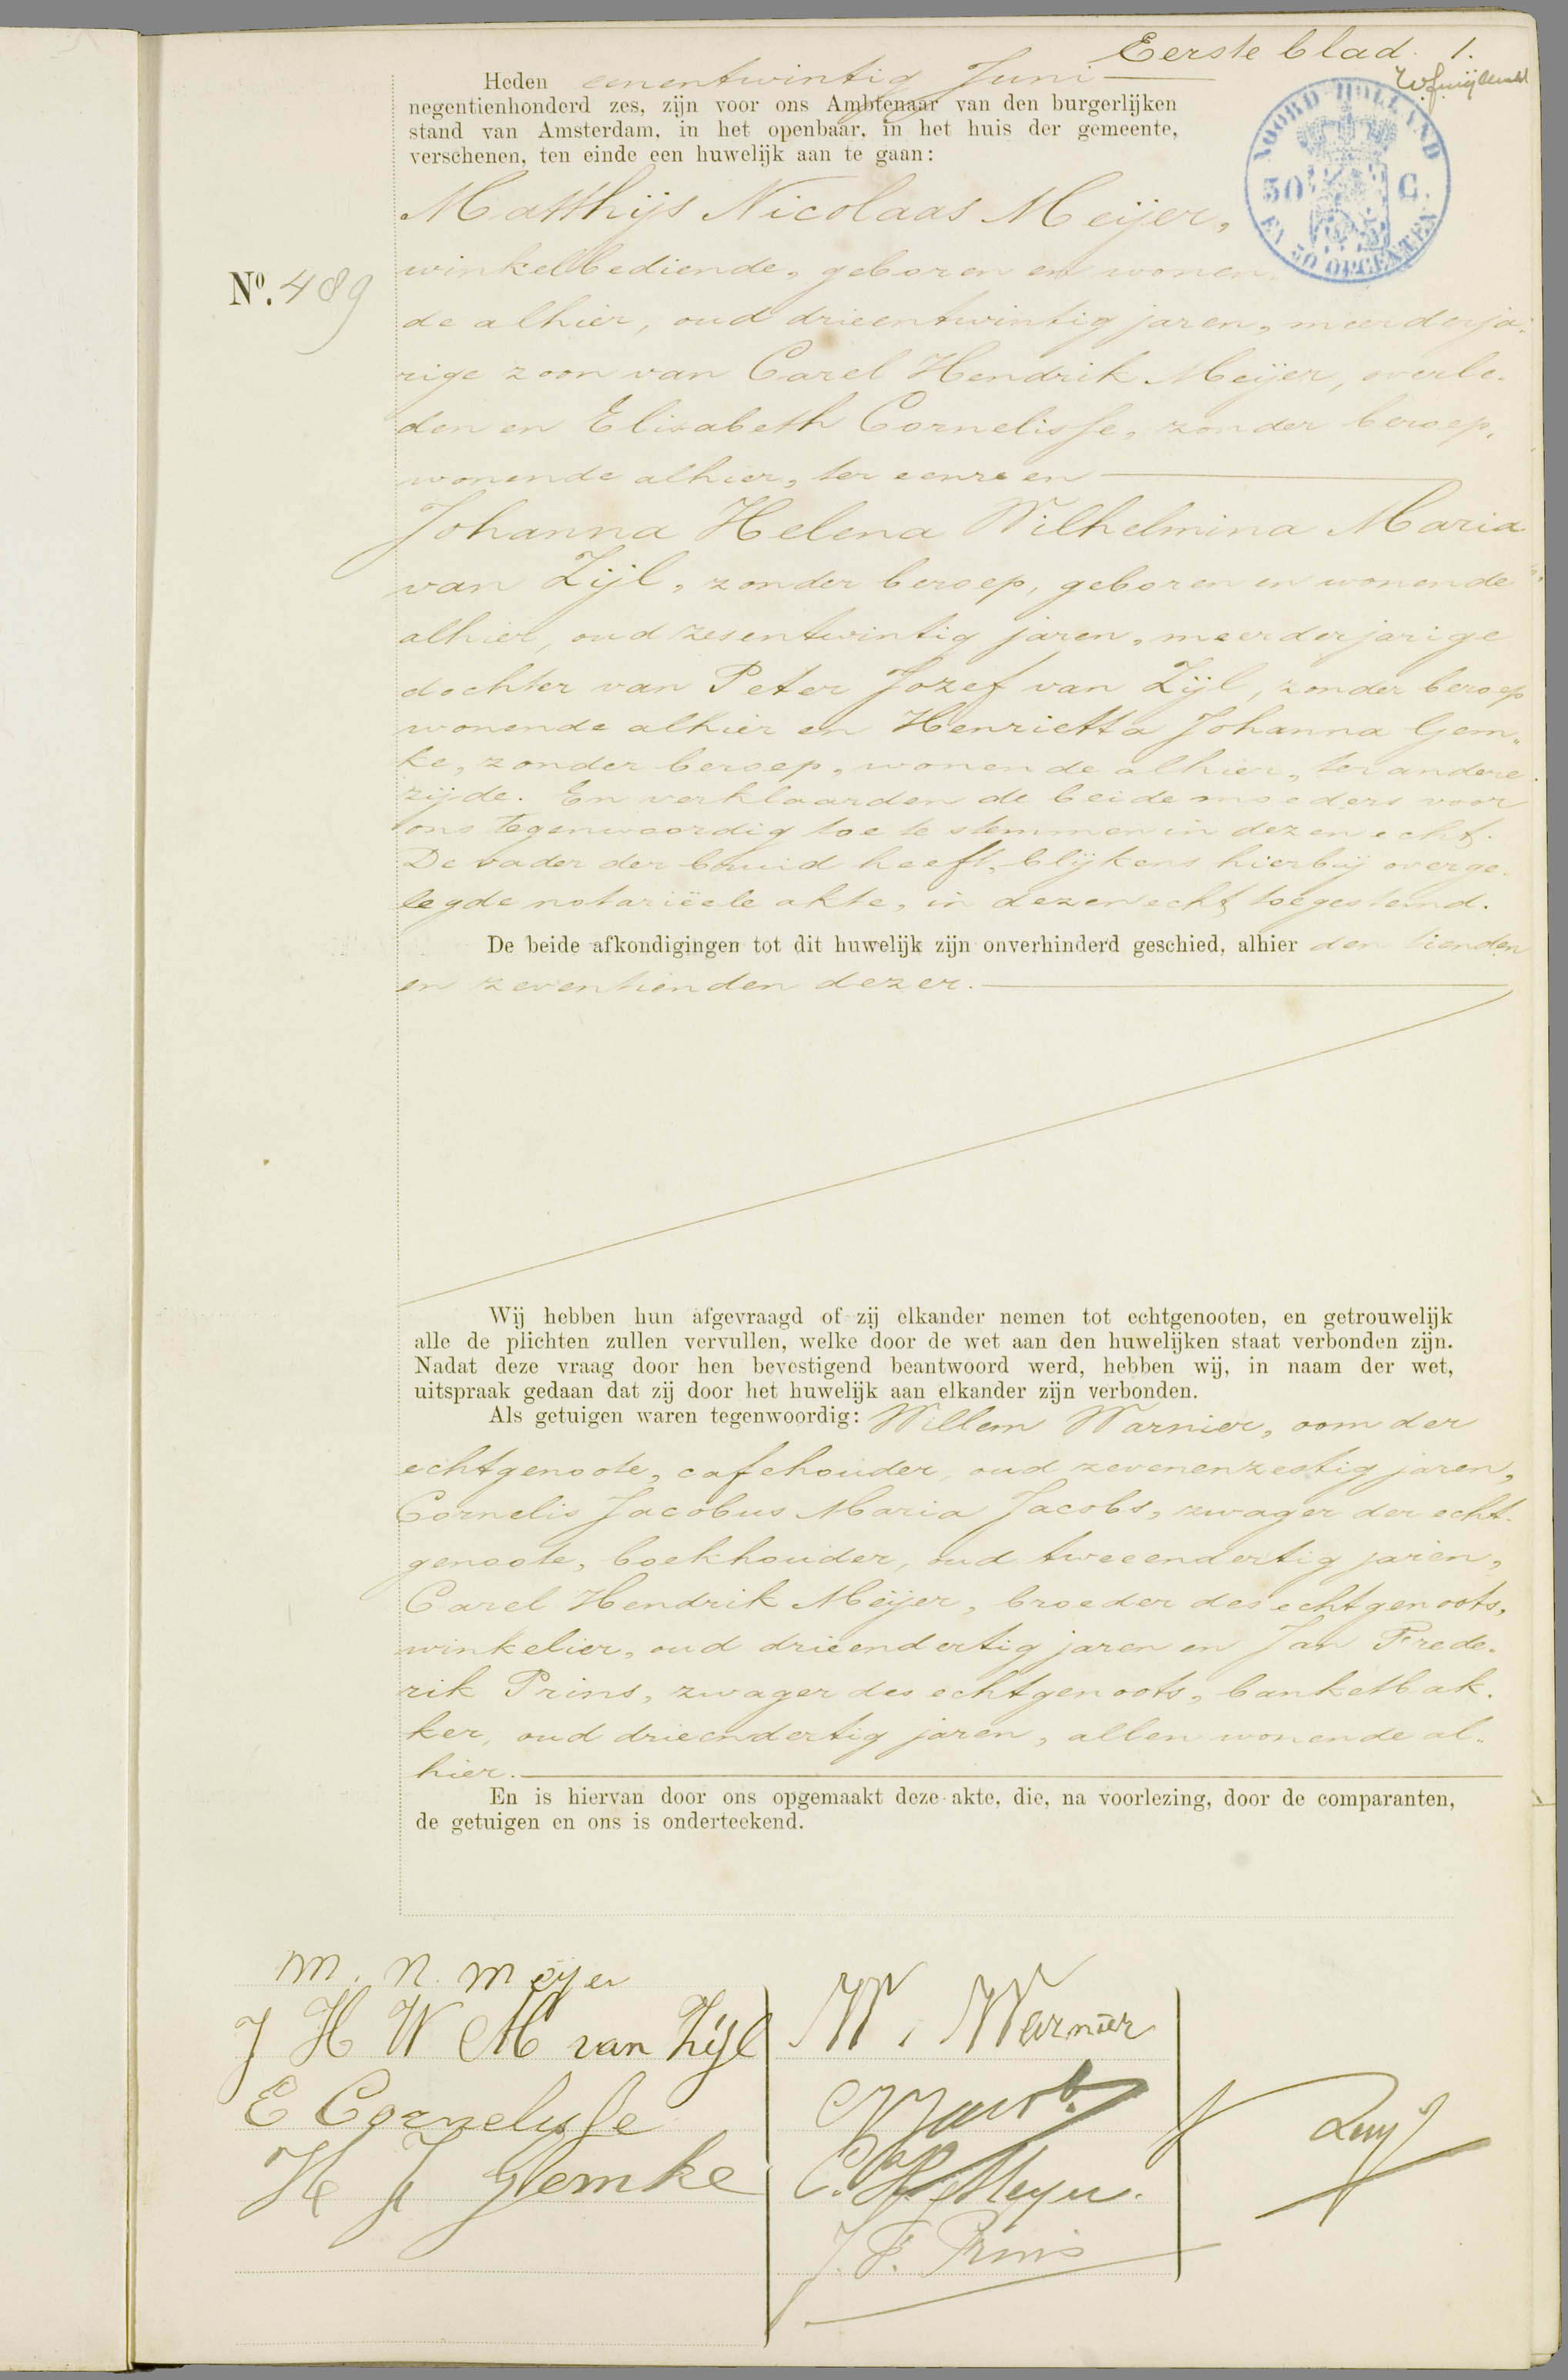 Eerste blad. 1.
Heden eenentwintig Juni
negentienhonderd zes, zijn voor ons Ambtenaar van den burgerlijken
stand van Amsterdam, in het openbaar, in het huis der gemeente,
verschenen, ten einde een huwelijk aan te gaan:
NOORD-HOLLAND
50 C.
EN 50 OPCENTEN
Matthijs Nicolaas Meijer,
No. 489
winkelbediende, geboren en wonen„
de alhier, oud drieentwintig jaren, meerderja„
rige zoon van Carel Hendrik Meijer, overle„
den en Elisabeth Cornelisse, zonder beroep,
wonende alhier, ter eenre en
Johanna Helena Wilhelmina Maria
van Zijl, zonder beroep, geboren en wonende
alhier, oud zesentwintig jaren, meerderjarige
dochter van Peter Jozef van Zijl, zonder beroep
wonende alhier en Henrietta Johanna Gem„
ke, zonder beroep, wonende alhier, ter andere
zijde. En verklaarden de beide moeders voor
ons tegenwoordig toe te stemmen in dezen echt.
De vader der bruid heeft, blijkens hierbij overge„
legde notariëele akte, in dezen echt toegestemd.
De beide afkondigingen tot dit huwelijk zijn onverhinderd geschied, alhier den tienden
en zeventienden dezer.
Wij hebben hun afgevraagd of zij elkander nemen tot echtgenooten, en getrouwelijk
alle de plichten zullen vervullen, welke door de wet aan den huwelijken staat verbonden zijn.
Nadat deze vraag door hen bevestigend beantwoord werd, hebben wij, in naam der wet,
uitspraak gedaan dat zij door het huwelijk aan elkander zijn verbonden.
Als getuigen waren tegenwoordig: Willem Warnier, oom der
echtgenoote, cafehouder, oud zevenenzestig jaren,
Cornelis Jacobus Maria Jacobs, zwager der echt„
genoote, boekhouder, oud tweeendertig jaren,
Carel Hendrik Meijer, broeder des echtgenoots,
winkelier, oud drieendertig jaren en Jan Frede„
rik Prins, zwager des echtgenoots, banketbak„
ker, oud drieendertig jaren, allen wonende al„
hier.
En is hiervan door ons opgemaakt deze akte, die, na voorlezing, door de comparanten,
de getuigen en ons is onderteekend.
M. N. Meijer
J H W M van Zijl
E Cornelisse
H J Gemke
W. Warnier
CJMJacobs
C. H. Meyer.
J. F. Prins